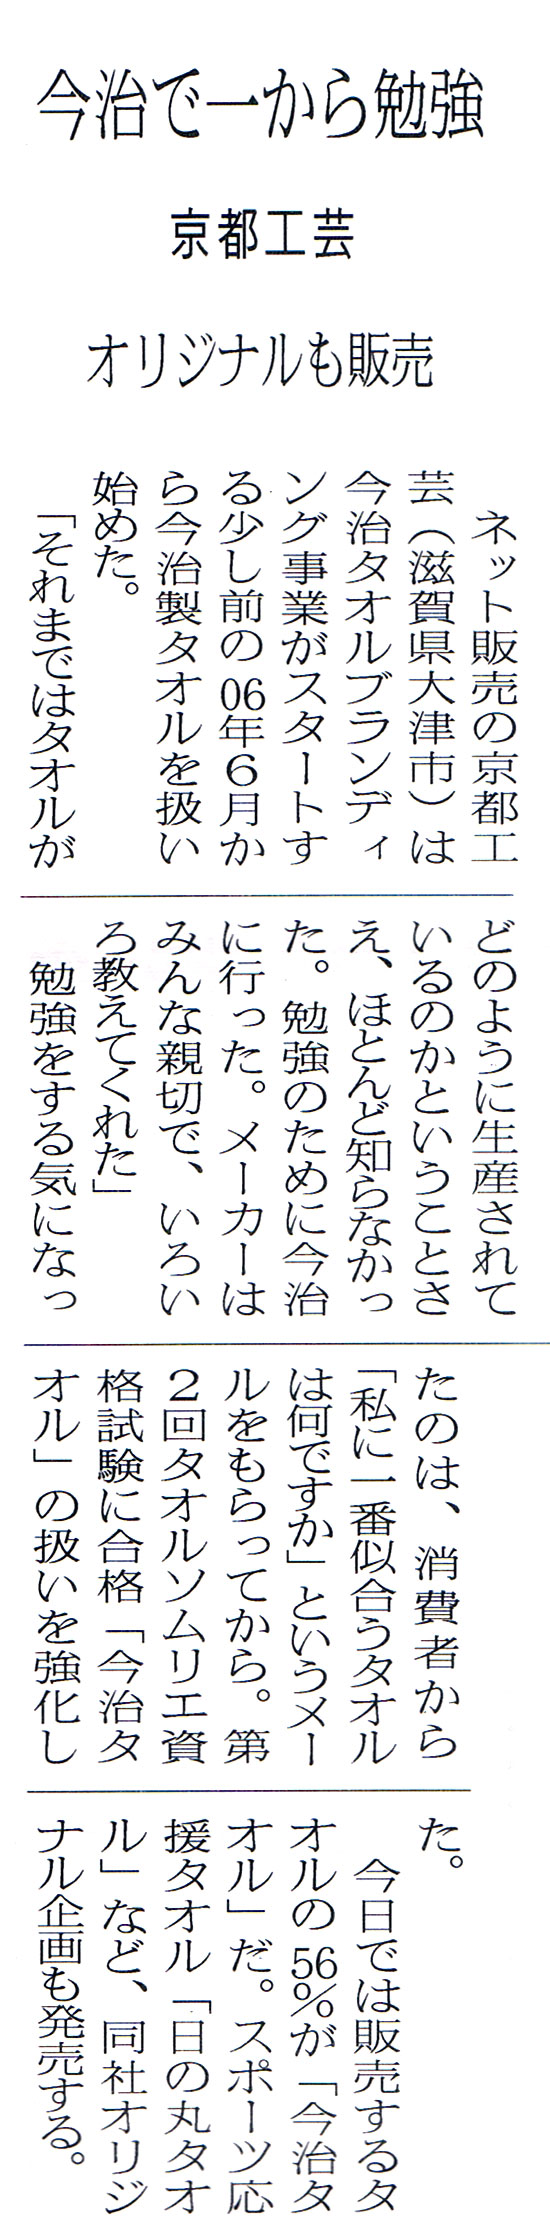 今治で一から勉強
京都工芸
オリジナルも販売
ネット販売の京都工
芸（滋賀県大津市）は
今治タオルブランディ
ング事業がスタートす
る少し前の06年6月か
ら今治製タオルを扱い
始めた。
「それまではタオルが
どのように生産されて
いるのかということさ
え、ほとんど知らなかっ
た。勉強のために今治
に行った。メーカーは
みんな親切で、いろい
ろ教えてくれた」
勉強をする気になっ
たのは、消費者から
「私に一番似合うタオル
は何ですか」というメー
ルをもらってから。第
２回タオルソムリエ資
格試験に合格「今治タ
オル」の扱いを強化し
た。
今日では販売するタ
オルの56％が「今治タ
オル」だ。スポーツ応
援タオル「日の丸タオ
ル」など、同社オリジ
ナル企画も発売する。